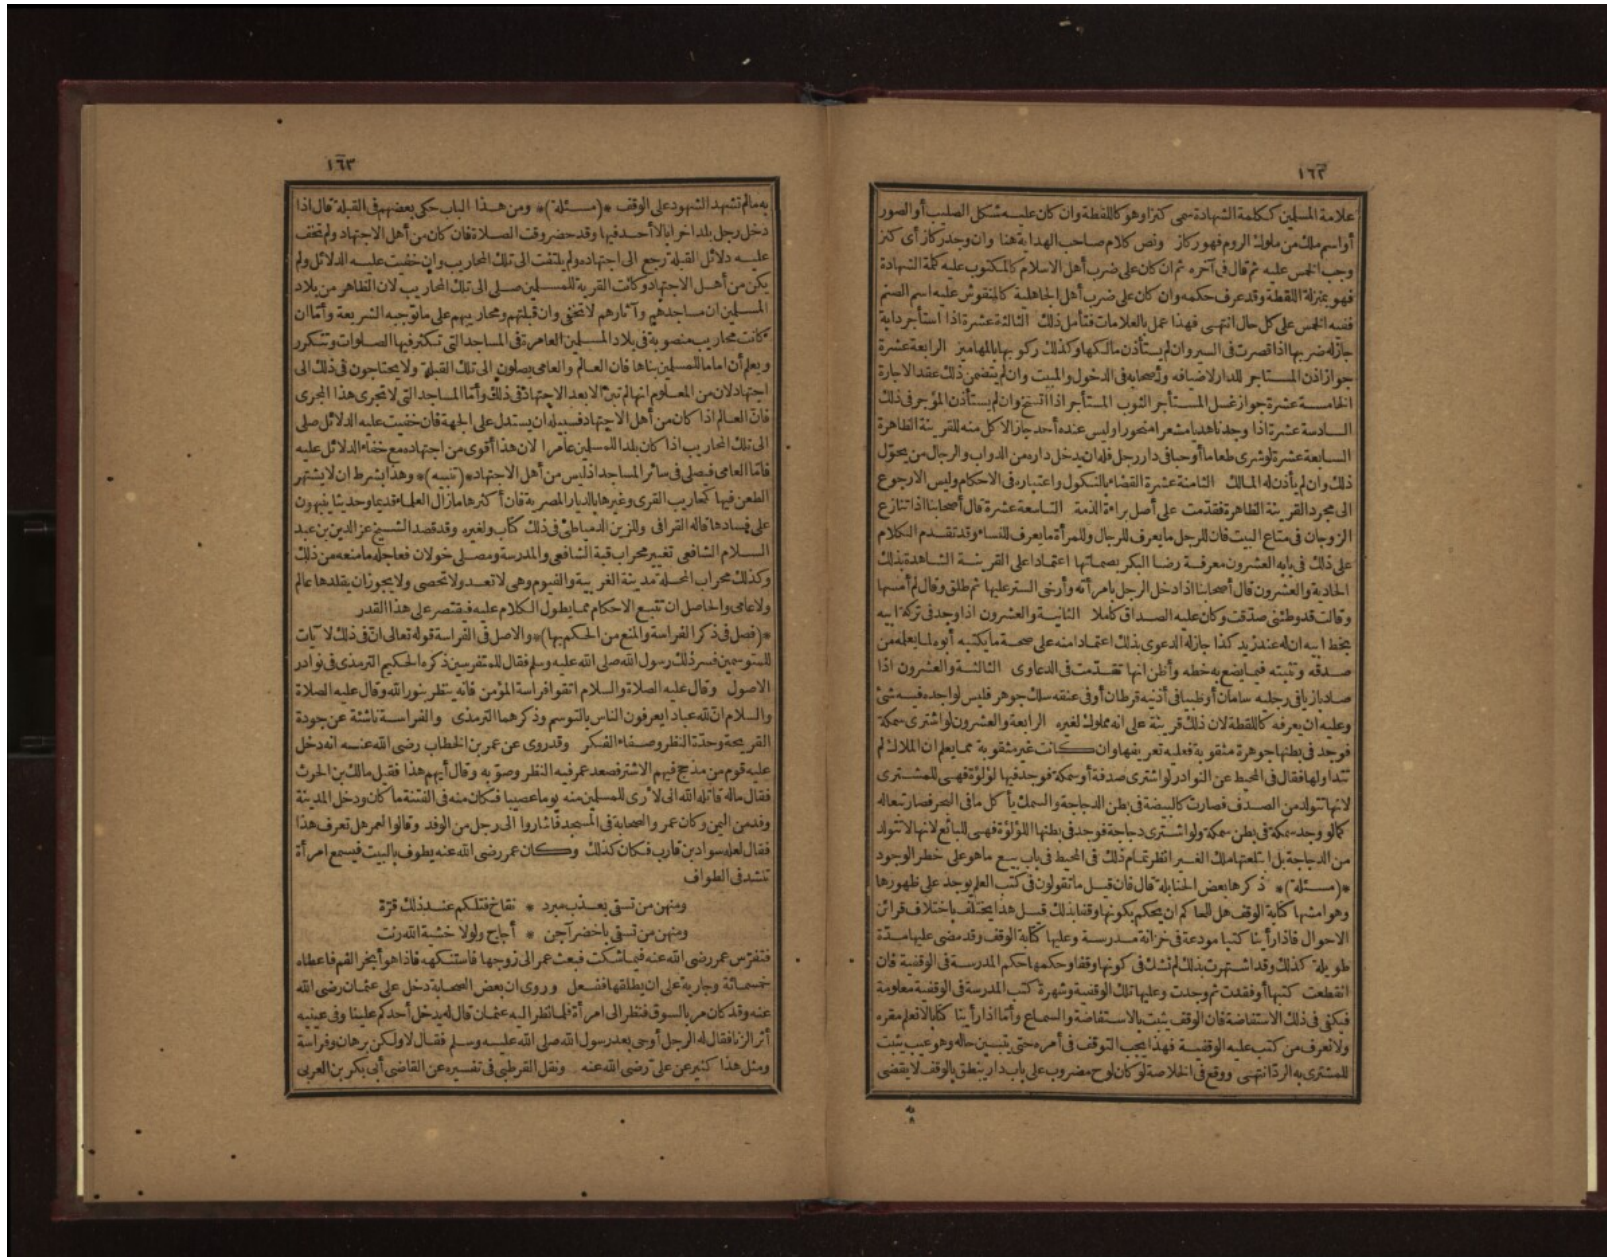 ١٦٢
علامة المسلمين ككلمة الشهادة سمى كنزا وهو كاللقطة وان كان عليه شكل الصليب أو الصور
أو اسم ملك من ملوك الروم فهو ركاز ونص كلام صاحب الهداية هنا وان وجد ركاز أى كنز
وجب الخمس عليه ثم قال فى آخره ثم ان كان على ضرب أهل الاسلام كالمكتوب عليه كلمة الشهادة
فهو بمنزلة اللقطة وقد عرف حكمه وان كان على ضرب أهل الجاهلية كالمنقوش عليه اسم الصنم
ففيه الخمس على كل حال انتهى فهذا عمل بالعلامات فتأمل ذلك الثالثة عشرة اذا استأجر دابة
جاز له ضربها اذا قصرت فى السير وان لم يستأذن مالكها وكذلك ركوبها بالمهاميز الرابعة عشرة
جواز اذن المستاجر للدار لاضيافه وأصحابه فى الدخول والمبيت وان لم يتضمن ذلك عقد الاجارة
الخامسة عشرة جواز غسل المستأجر الثوب المستأجر اذا اتسخ وان لم يستأذن المؤجر فى ذلك
السادسة عشرة اذا وجدنا هديا مشعرا منحورا وليس عنده أحد جاز الاكل منه للقرينة الظاهرة
السابعة عشرة لو شرى طعاما أو حبا فى دار رجل فله ان يدخل داره من الدواب والرجال من يحوّل
ذلك وان لم يأذن له المالك الثامنة عشرة القضاء بالنكول واعتباره فى الاحكام وليس الا رجوع
الى مجرد القرينة الظاهرة فقدّمت على أصل براءة الذمة التاسعة عشرة قال أصحابنا اذا تنازع
الزوجان فى متاع البيت فان للرجل ما يعرف للرجال وللمرأة ما يعرف للنساء وقد تقدم الكلام
على ذلك فى بابه العشرون معرفة رضا البكر بصماتها اعتمادا على القرينة الشاهدة بذلك
الحادية والعشرون قال أصحابنا اذا دخل الرجل بامرأته وأرخى الستر عليها ثم طلق وقال لم أمسها
وقالت قد وطئنى صدّقت وكان عليه الصداق كاملا الثانية والعشرون اذا وجد فى تركة ابيه
بخط ابيه ان له عند زيد كذا جاز له الدعوى بذلك اعتمادا منه على صحة ما يكتبه أبوه لما يعلمه من
صدقه وتثبته فيما يضع به خطه وأظن انها تقدّمت فى الدعاوى الثالثة والعشرون اذا
صاد بازيا فى رجليه سامان أو ظبيا فى أذنيه قرطان أو فى عنقه سلك جوهر فليس لواجده فيه شئ
وعليه ان يعرفه كاللقطة لان ذلك قرينة على انه مملوك لغيره الرابعة والعشرون لو اشترى سمكة
فوجد فى بطنها جوهرة مثقوبة فعليه تعريفها وان كانت غير مثقوبة مما يعلم ان الملاك لم
تتداولها فقال فى المحيط عن النوادر لو اشترى صدفة أو سمكة فوجد فيها لؤلؤة فهى للمشترى
لانها تتولد من الصدف فصارت كالبيضة فى بطن الدجاجة والسمك يأكل ما فى البحر فصار تبعا له
كما لو وجد سمكة فى بطن سمكة ولو اشترى دجاجة فوجد فى بطنها اللؤلؤة فهى للبائع لانها لا تتولد
من الدجاجة بل ابتلعتها ملك الغير انظر تمام ذلك فى المحيط فى باب بيع ما هو على خطر الوجود
*(مسئلة)* ذكرها بعض الحنابلة قال فان قيل ما تقولون فى كتب العلم يوجد على ظهورها
وهوامشها كتابة الوقف هل للحاكم ان يحكم بكونها وقفا بذلك قيل هذا يختلف باختلاف قرائن
الاحوال فاذا رأينا كتبا مودعة فى خزانة مدرسة وعليها كتابة الوقف وقد مضى عليها مدّة
طويلة كذلك وقد اشتهرت بذلك لم نشك فى كونها وقفا وحكمها حكم المدرسة فى الوقفية فان
انقطعت كتبها أو فقدت ثم وجدت وعليها تلك الوقفية وشهرة كتب المدرسة فى الوقفية معلومة
فيكفى فى ذلك الاستفاضة فان الوقف يثبت بالاستفاضة والسماع وأمّا اذا رأينا كتابا لا نعلم مقره
ولا نعرف من كتب عليه الوقفية فهذا يجب التوقف فى أمره حتى يتبين حاله وهو عيب يثبت
للمشترى به الردّ انتهى ووقع فى الخلاصة لو كان لوح مضروب على باب دار ينطق بالوقف لا يقضى
به
١٦٣
به ما لم تشهد الشهود على الوقف *(مسئلة)* ومن هذا الباب حكى بعضهم فى القبلة قال اذا
دخل رجل بلدا خرابا لا أحد فيها وقد حضر وقت الصلاة فان كان من أهل الاجتهاد ولم تخف
عليه دلائل القبلة رجع الى اجتهاده ولم يلتفت الى تلك المحاريب وان خفيت عليه الدلائل ولم
يكن من أهل الاجتهاد وكانت القرية للمسلمين صلى الى تلك المحاريب لان الظاهر من بلاد
المسلمين ان مساجدهم وآثارهم لا تخفى وان قبلتهم ومحاريبهم على ما توجبه الشريعة وأمّا ان
كانت محاريب منصوبة فى بلاد المسلمين العامرة فى المساجد التى تكثر فيها الصلوات وتتكرر
ويعلم أن اماما للمسلمين بناها فان العالم والعامى يصلون الى تلك القبلة ولا يحتاجون فى ذلك الى
اجتهاد لان من المعلوم انها لم تبن الا بعد الاجتهاد فى ذلك وأمّا المساجد التى لا تجرى هذا المجرى
فانّ العالم اذا كان من أهل الاجتهاد فسبيله ان يستدل على الجهة فان خفيت عليه الدلائل صلى
الى تلك المحاريب اذا كان بلدا للمسلمين عامرا لان هذا أقوى من اجتهاده مع خفاء الدلائل عليه
فامّا العامى فيصلى فى سائر المساجد اذ ليس من أهل الاجتهاد *(تنبيه)* وهذا بشرط ان لا يشتهر
الطعن فيها كمحاريب القرى وغيرها بالديار المصرية فان أكثرها ما زال العلماء قديما وحديثا ينبهون
على فسادها قاله القرافى وللزين الدمياطى فى ذلك كتاب ولغيره وقد قصد الشيخ عز الدين بن عبد
السلام الشافعى تغيير محراب قبة الشافعى والمدرسة ومصلى خولان فعاجله ما منعه من ذلك
وكذلك محراب المحلة مدينة الغربية والفيوم وهى لا تعد ولا تحصى ولا يجوز ان يقلدها عالم
ولا عامى والحاصل ان تتبع الاحكام مما يطول الكلام عليه فنقتصر على هذا القدر
*(فصل فى ذكر الفراسة والمنع من الحكم بها)* والاصل فى الفراسة قوله تعالى انّ فى ذلك لآيات
للمتوسمين فسر ذلك رسول الله صلى الله عليه وسلم فقال للمتفرسين ذكره الحكيم الترمذى فى نوادر
الاصول وقال عليه الصلاة والسلام اتقوا فراسة المؤمن فانّه ينظر بنور الله وقال عليه الصلاة
والسلام انّ لله عبادا يعرفون الناس بالتوسم وذكرهما الترمذى والفراسة ناشئة عن جودة
القريحة وحدّة النظر وصفاء الفكر وقد روى عن عمر بن الخطاب رضى الله عنه انه دخل
عليه قوم من مذحج فيهم الاشتر فصعد عمر فيه النظر وصوّبه وقال أيهم هذا فقيل مالك بن الحرث
فقال ماله قاتله الله انى لأرى للمسلمين منه يوما عصيبا فكان منه فى الفتنة ما كان ودخل المدينة
وفد من اليمن وكان عمر والصحابة فى المسجد فاشاروا الى رجل من الوفد وقالوا لعمر هل تعرف هذا
فقال لعله سواد بن قارب فكان كذلك وكان عمر رضى الله عنه يطوف بالبيت فسمع امرأة
تنشد فى الطواف
ومنهن من تسقى بعذب مبرد * نقاخ فتلكم عند ذلك قرّة
ومنهن من تسقى باخضر آجن * أجاج ولولا خشية الله رنت
فتفرّس عمر رضى الله عنه فيما شكت فبعث عمر الى زوجها فاستنكهه فاذا هو أبخر الفم فاعطاه
خمسمائة وجارية على ان يطلقها ففعل وروى ان بعض الصحابة دخل على عثمان رضى الله
عنه وقد كان مر بالسوق فنظر الى امرأة فلما نظر اليه عثمان قال له يدخل أحدكم علينا وفى عينيه
أثر الزنا فقال له الرجل أوحى بعد رسول الله صلى الله عليه وسلم فقال لا ولكن برهان وفراسة
ومثل هذا كثير عن على رضى الله عنه ونقل القرطبى فى تفسيره عن القاضى أبى بكر بن العربى